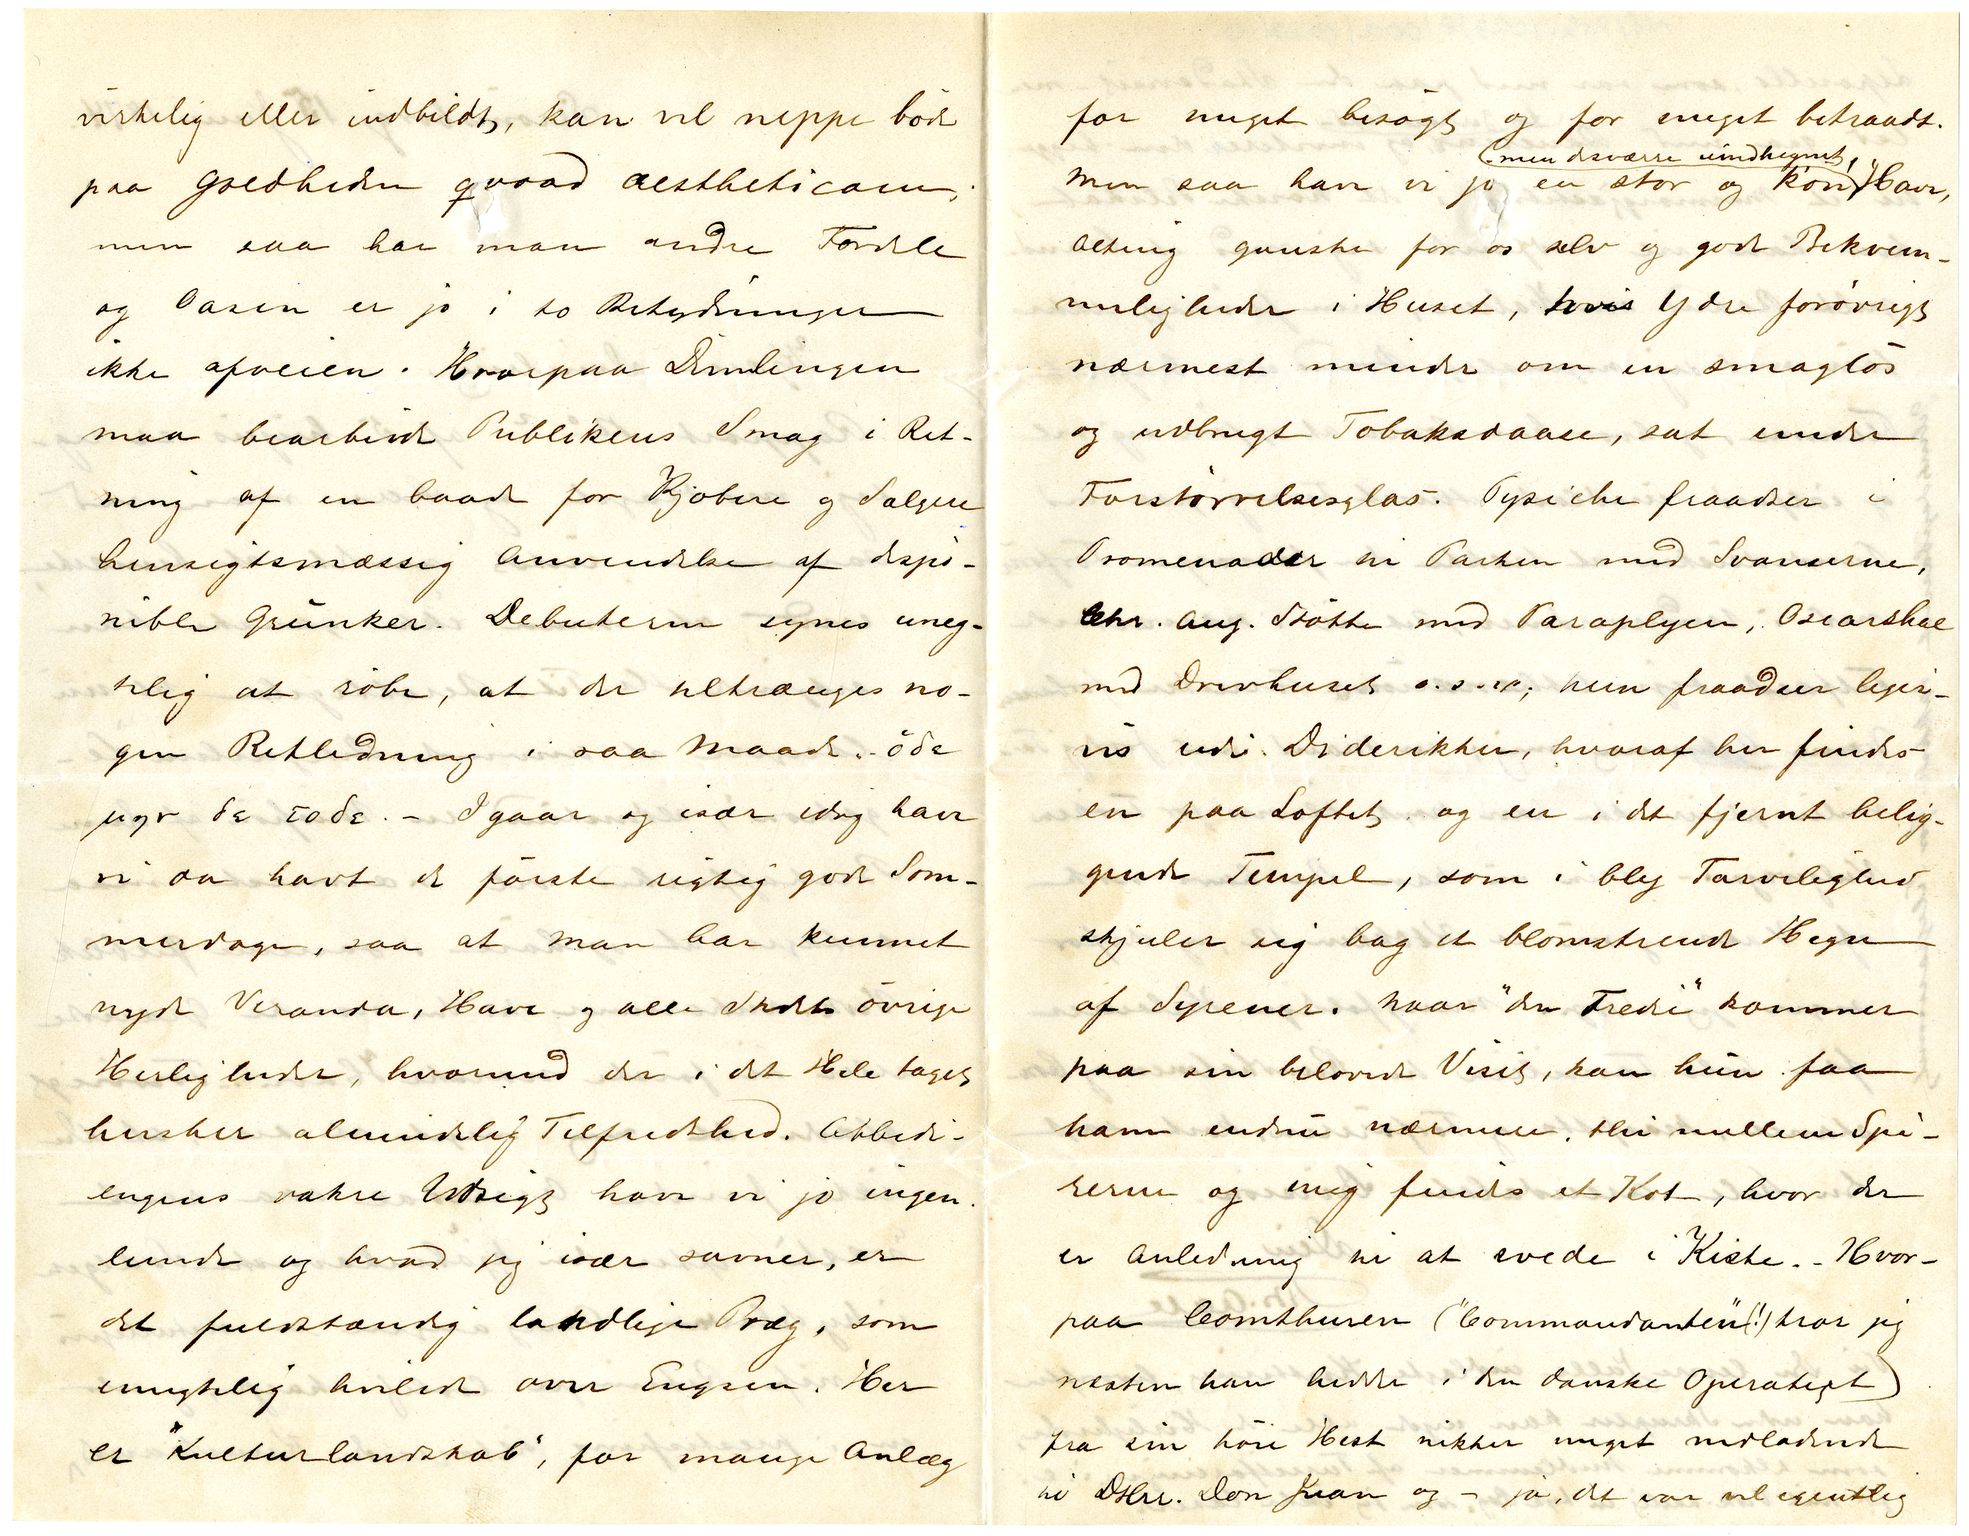 virkelig eller indbildt, kan vel neppe böde
paa Goldheden quoad aestheticam;
men saa har man andre Fordele
og Oasen er jo i to Betydninger
ikke afveien. Hvorpaa Dimlingen
maa bearbeide Publikens Smag i Ret-
ning af en baade for Kjöbere og Sælgere
hensigtsmæssig Anvendelse af dispo-
nible Grunker. Debuterne synes uneg-
telig at röbe, at der tiltrænges no-
gen Retledning i saa Maade. – ὅδε
μεν δε τοδε. – Igaar og især idag have
vi da havt de förste rigtig gode Som-
merdage, saa at man har kunnet
nyde Veranda, Have og alle Stedets övrige
Herligheder, hvormed der i det Hele taget
hersker almindelig Tilfredshed. Abbedi-
engens vakre Udsigt have vi jo ingen-
lunde og hvad jeg især savner, er
det fuldstændig landlige Præg, som
unegtelig hvilede over Engen. Her
er "Kulturlandskab", for mange Anlæg
for meget besögt og for meget betraadt.
men desværre uindhegnet,
Men saa have vi jo en stor og kön Have,
Alting ganske for os selv og gode Bekvem-
meligheder i Huset, hvis Ydre forövrigt
nærmest minder om en smaglös
og udbrugt Tobaksdaase, sat under
Forstörrelsesglas. Psyche fraadser i
Promenader til Parken med Svanerne,
Chr. Aug. Stötte med Paraplyen, Oscarshal
med Drivhuset o.s.v.; hun fraadser liges-
vis udi Dideriker, hvoraf her findes
en paa Loftet og en i det fjernt belig-
gende Tempel, som i bly Tarvelighed
skjuler sig bag et blomstrende Hegn
af Syrener. Naar "den Tredie" kommer
paa sin belovede Visit, kan hun faa
ham endnu nærmere, thi mellem Spi-
serne og mig findes et Kot, hvor der
er Anledning til at svede i Kiste. – Hvor-
paa Comthuren ("Commandanten"(!) tror jeg
næsten han hedder i den danske Operatext)
fra sin höie Hest nikker meget nedladende
til DHrr. Don Juan og – ja, det var vel egentlig